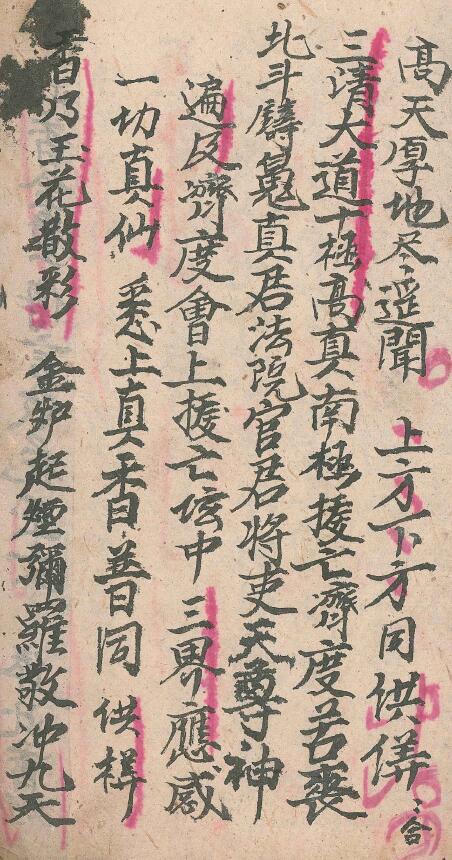 高天厚地尽遥聞 上方下方同供養
三清大道十極高真南極援亡濟度苦喪
北斗驛㲋真君法院官君将吏天尊神
遍及濟度會上援亡坛中 三界應感
一切真仙 悉上真香普同 供拜
香乃玉花散彩 金炉起煙彌羅敬冲九天